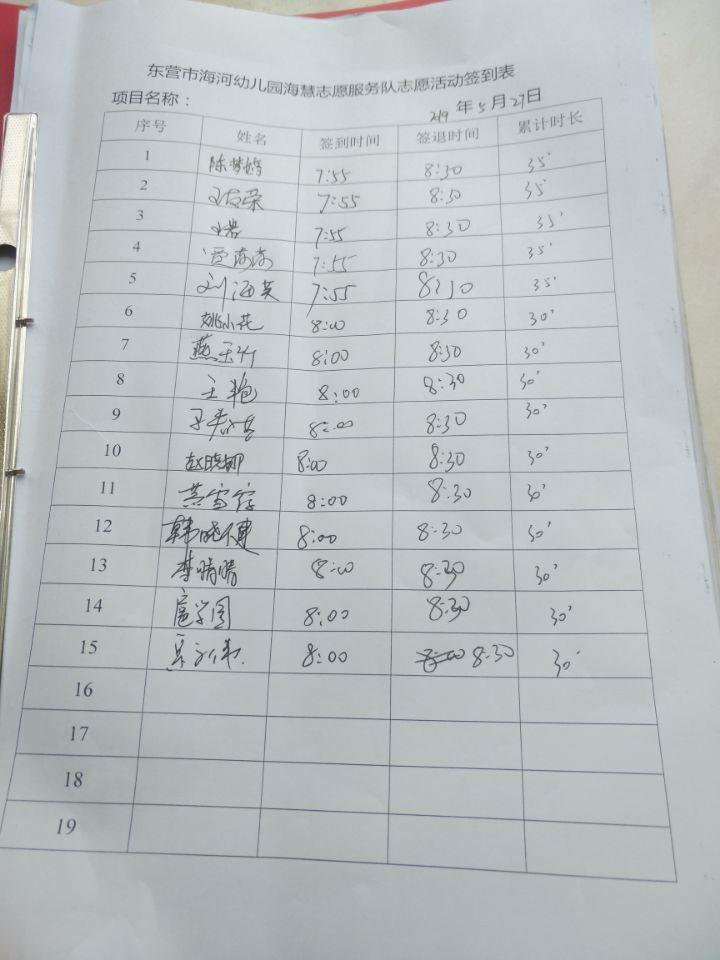 东营市海河幼儿园海慧志愿服务队志愿活动签到表
项目名称： 2019年5月27日
序号 姓名 签到时间 签退时间 累计时长
1 陈梦婷 7:55 8:30 35'
2 7:55 8:30 35'
3 7:55 8:30 35'
4 贾燕燕 7:55 8:30 35'
5 刘海英 7:55 8:30 35'
6 姚小花 8:00 8:30 30'
7 燕 8:00 8:30 30'
8 王艳 8:00 8:30 30'
9 8:00 8:30 30'
10 赵晓娜 8:00 8:30 30'
11 黄雪 8:00 8:30 30'
12 韩晓健 8:00 8:30 30'
13 李晴晴 8:00 8:30 30'
14 扈学园 8:00 8:30 30'
15 8:00 8:00 8:30 30'
16
17
18
19